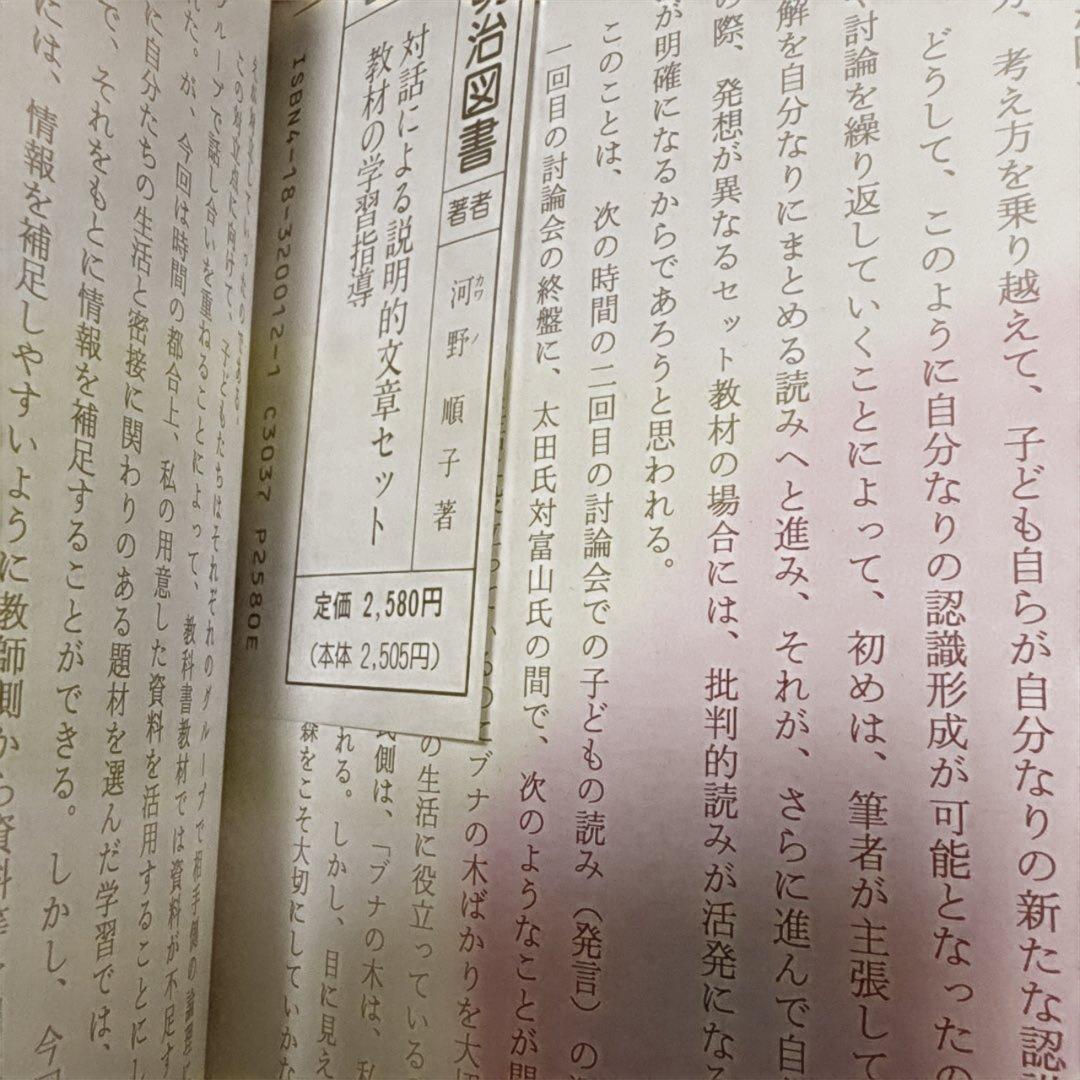 方、考え方を乗り越えて、子ども自らが自分なりの新たな認識
どうして、このように自分なりの認識形成が可能となったの
討論を繰り返していくことによって、初めは、筆者が主張して
解を自分なりにまとめる読みへと進み、それが、さらに進んで自
の際、発想が異なるセット教材の場合には、批判的読みが活発になる
が明確になるからであろうと思われる。
このことは、次の時間の二回目の討論会での子どもの読み（発言）の
一回目の討論会の終盤に、太田氏対富山氏の間で、次のようなことが
ブナの木ばかりを大切
の生活に役立っている
氏側は、「ブナの木は、私
れる。しかし、目に見え
森をこそ大切にしていかな
明治図書
著者
河野順子著
カワノ
対話による説明的文章セット
教材の学習指導
定価 2,580円
(本体 2,505円)
ISBN4-18-320012-1 C3037 P2580E
この対立点に向けて、子どもたちはそれぞれのグループで相手側の論理に
グループで話し合いを重ねることによって、教科書教材では資料が不足す
た。が、今回は時間の都合上、私の用意した資料を活用することにし
に自分たちの生活と密接に関わりのある題材を選んだ学習では、
で、それをもとに情報を補足することができる。しかし、今
には、情報を補足しやすいように教師側から資料等